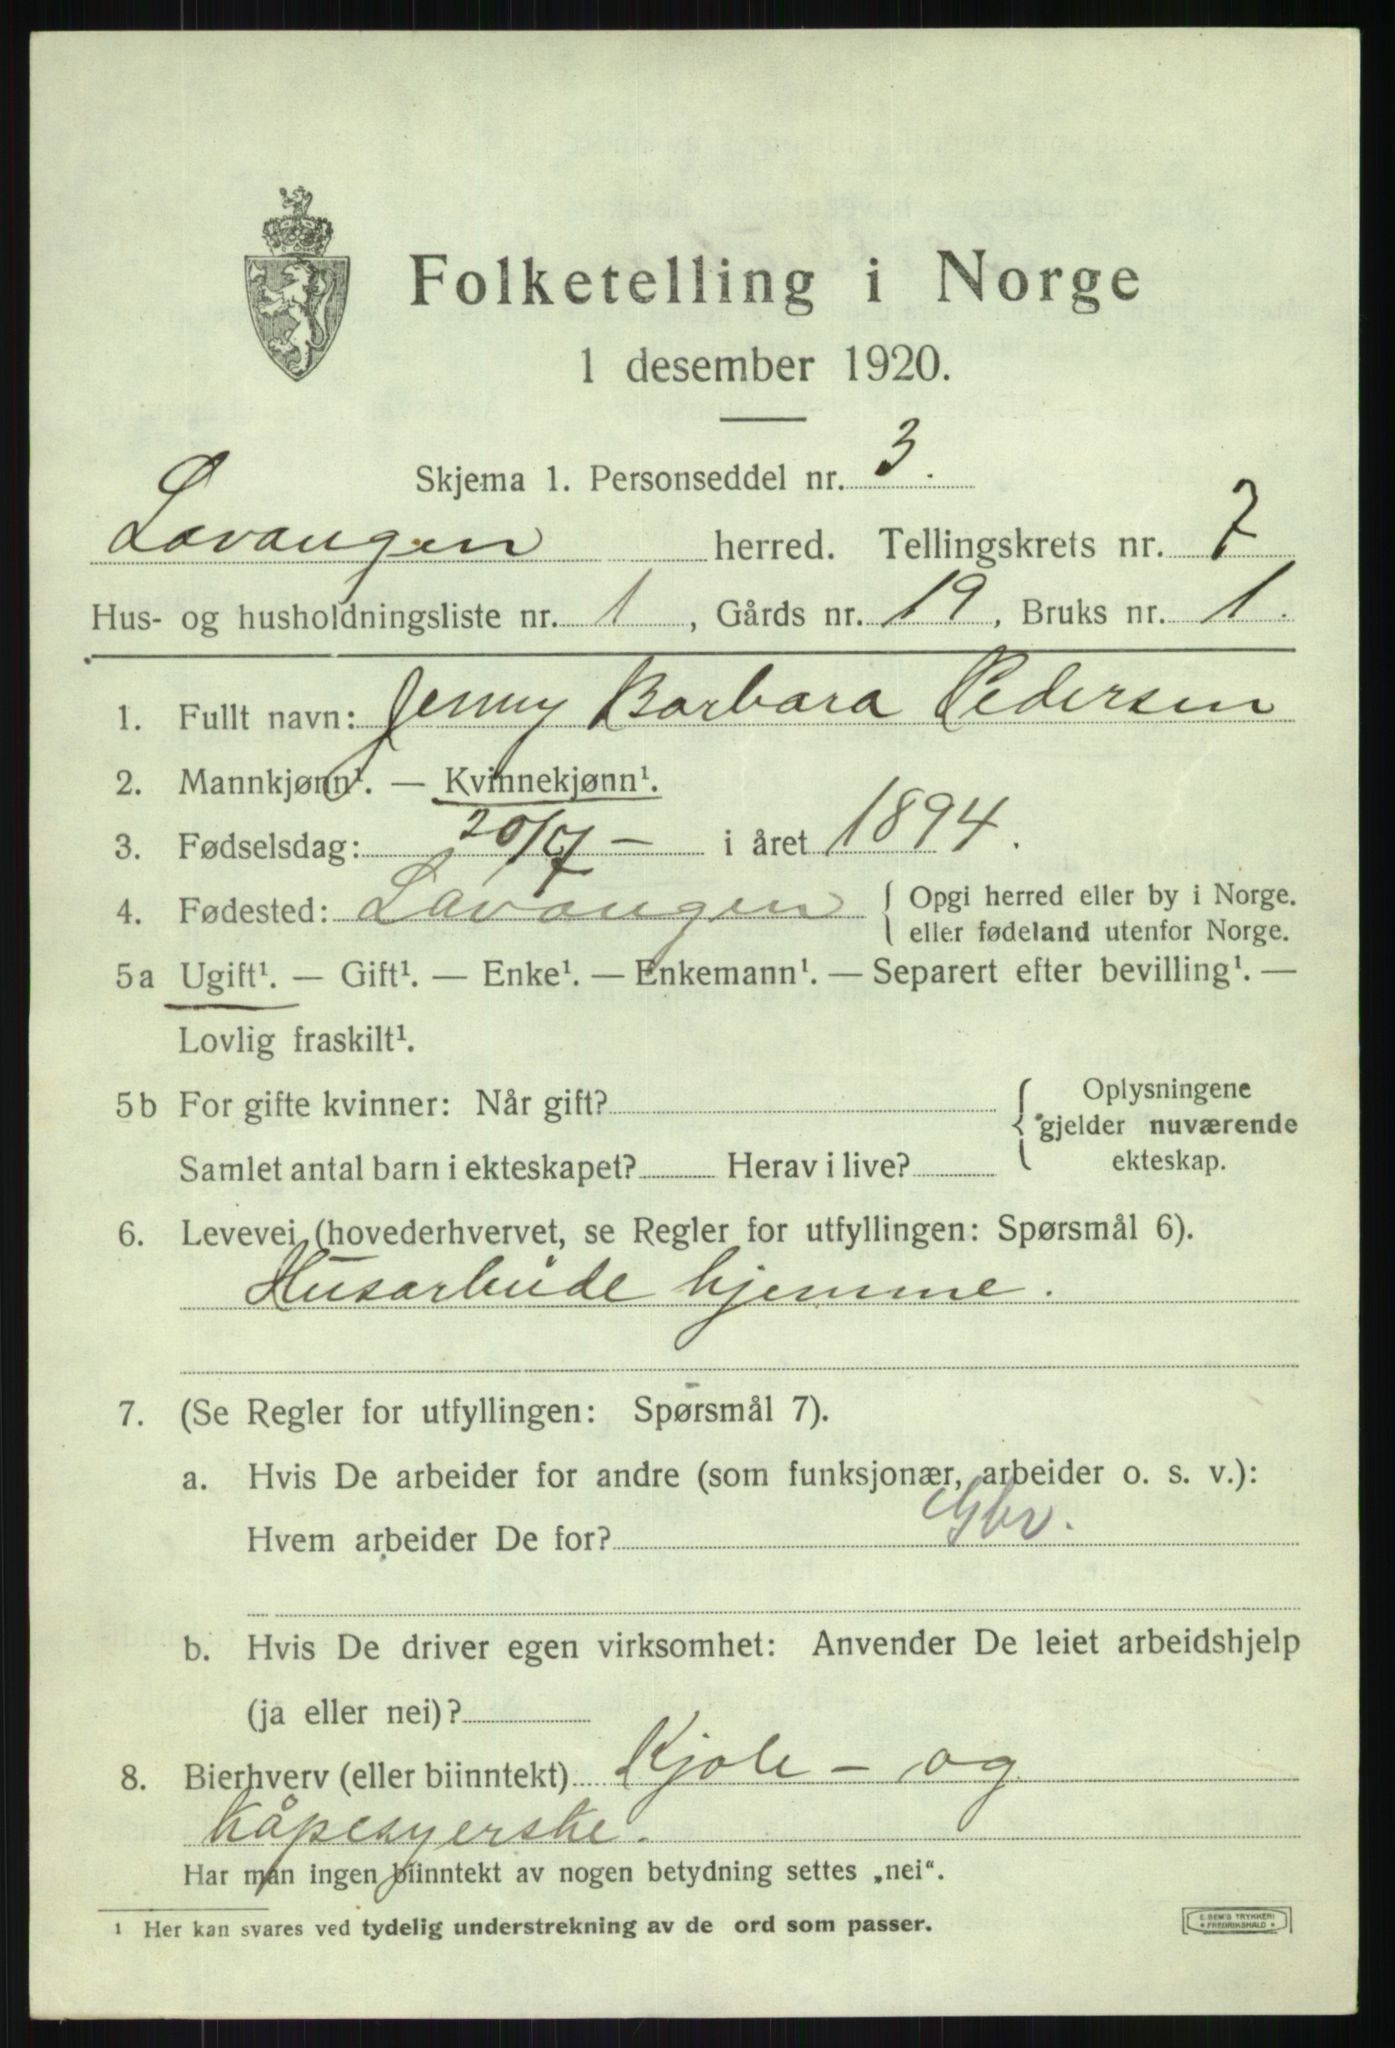 Folketelling i Norge
1 desember 1920.
Skjema 1. Personseddel nr. 3.
Lavangen herred. Tellingskrets nr. 7
Hus- og husholdningsliste nr. 1, Gårds nr. 19, Bruks nr. 1.
1. Fullt navn: Jenny Barbara Pedersen
2. Mannkjønn¹. — Kvinnekjønn¹.
3. Fødselsdag: 20/7 — i året 1894.
4. Fødested: Lavangen { Opgi herred eller by i Norge.
eller fødeland utenfor Norge.
5a Ugift¹. — Gift¹. — Enke¹. — Enkemann¹. — Separert efter bevilling¹. —
Lovlig fraskilt¹.
5b For gifte kvinner: Når gift? { Oplysningene
gjelder nuværende
Samlet antal barn i ekteskapet? Herav i live? ekteskap.
6. Levevei (hovederhvervet, se Regler for utfyllingen: Spørsmål 6).
Husarbeide hjemme.
7. (Se Regler for utfyllingen: Spørsmål 7).
a. Hvis De arbeider for andre (som funksjonær, arbeider o. s. v.):
Hvem arbeider De for? Gbr.
b. Hvis De driver egen virksomhet: Anvender De leiet arbeidshjelp
(ja eller nei)?
8. Bierhverv (eller biinntekt) Kjole- og
kåpesyerske.
Har man ingen biinntekt av nogen betydning settes „nei“.
¹ Her kan svares ved tydelig understrekning av de ord som passer.
E. SEM'S TRYKKERI
FREDRIKSHALD